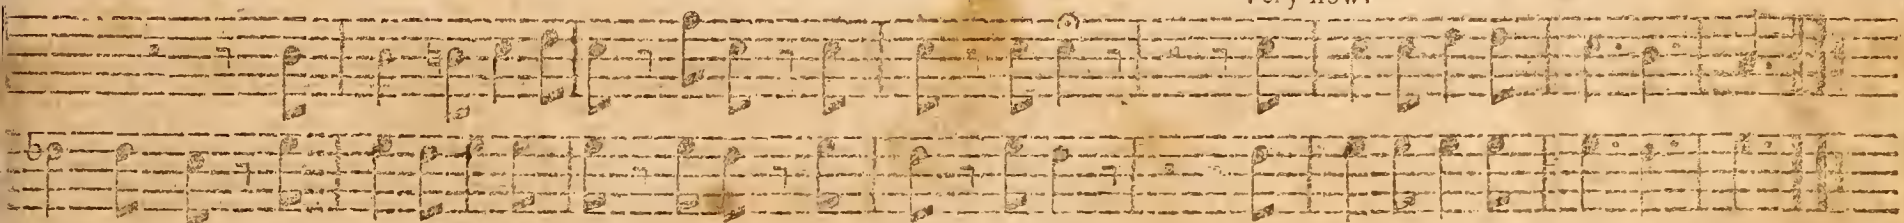 Very ſlow.